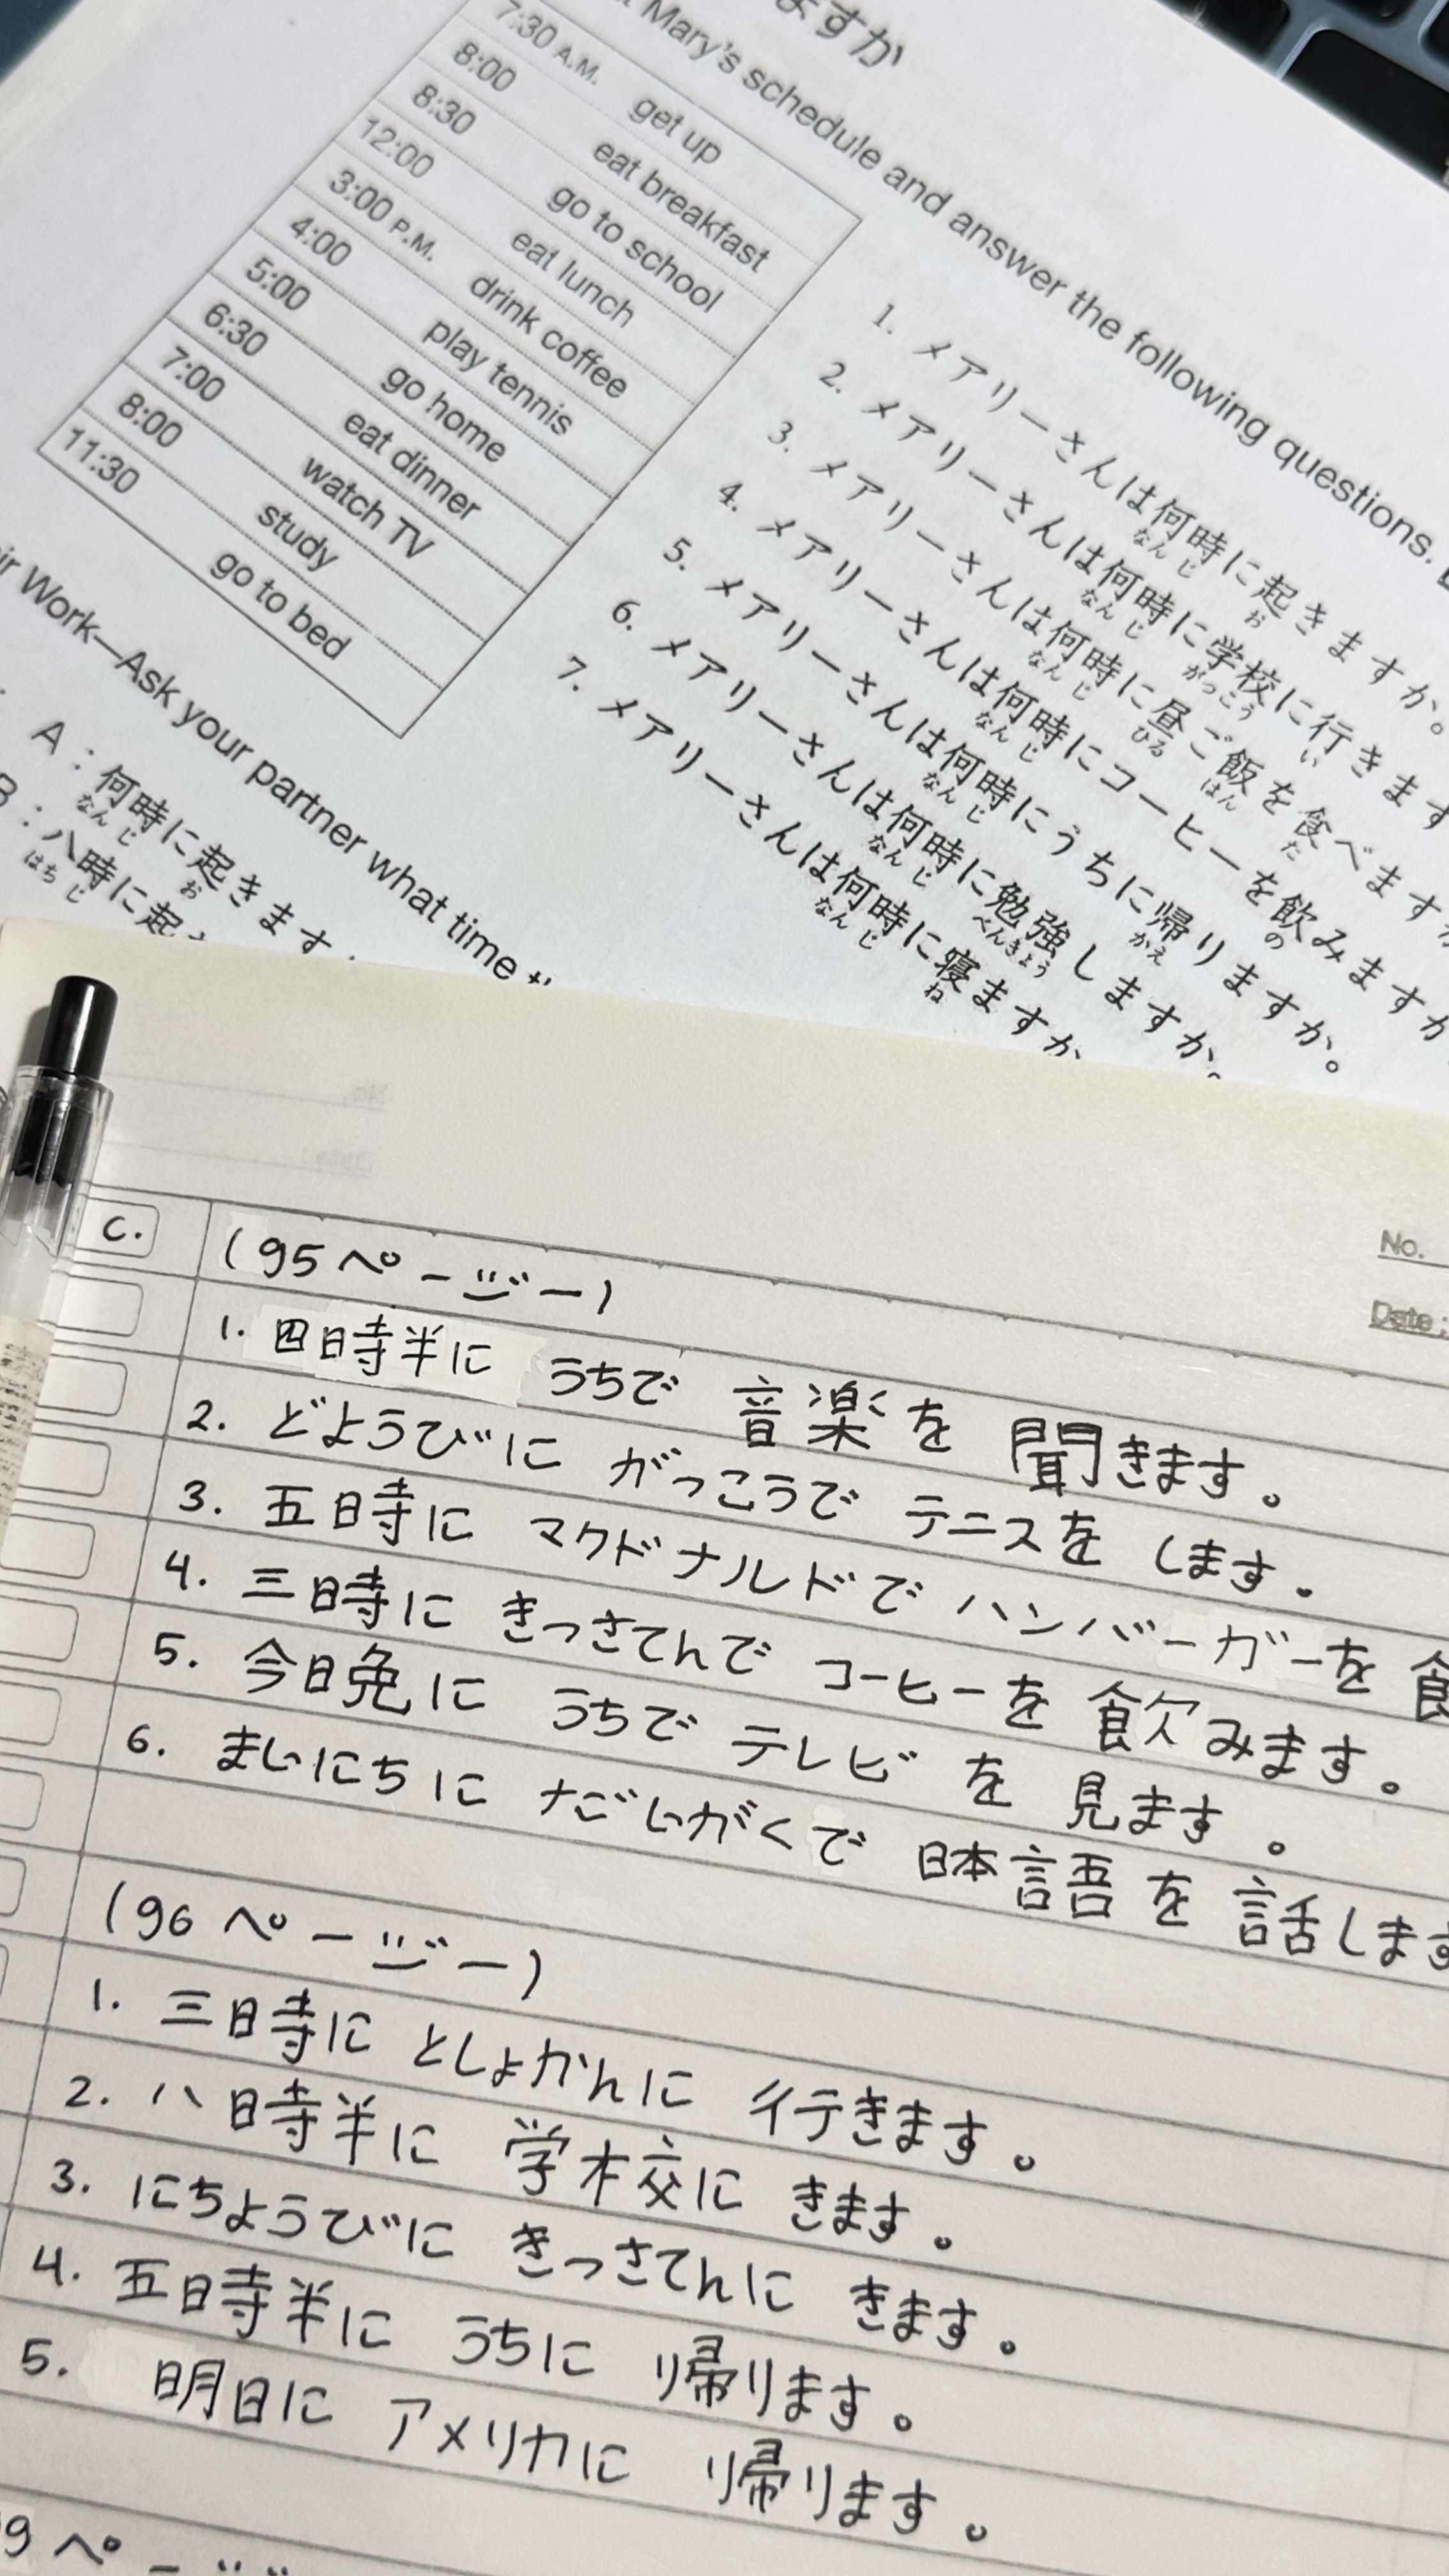 ますか
Mary's schedule and answer the following questions.
7:30 A.M. get up
8:00 eat breakfast
8:30 go to school
12:00 eat lunch
3:00 P.M. drink coffee
4:00 play tennis
5:00 go home
6:30 eat dinner
7:00 watch TV
8:00 study
11:30 go to bed
1. メアリーさんは何時に起きますか。
なんじ お
2. メアリーさんは何時に学校に行きます
なんじ がっこう い
3. メアリーさんは何時に昼ご飯を食べます
なんじ ひる はん た
4. メアリーさんは何時にコーヒーを飲みますか
なんじ の
5. メアリーさんは何時にうちに帰りますか。
なんじ かえ
6. メアリーさんは何時に勉強しますか。
なんじ べんきょう
7. メアリーさんは何時に寝ますか
なんじ ね
ir Work—Ask your partner what time
A：何時に起きます
なんじ お
B：八時に起
はちじ
No.
Date:
C. (95ページー)
1. 四時半に うちで 音楽を 聞きます。
2. どようびに がっこうで テニスを します.
3. 五時に マクドナルドで ハンバーガーを 食
4. 三時に きっさてんで コーヒーを 飲みます。
5. 今日免に うちで テレビを 見ます。
6. まいにちに だいがくで 日本語を 話します
(96ページー)
1. 三時に としょかんに 行きます。
2. 八時半に 学校に きます。
3. にちようびに きっさてんに きます。
4. 五時半に うちに 帰ります。
5. 明日に アメリカに 帰ります。
9ページ